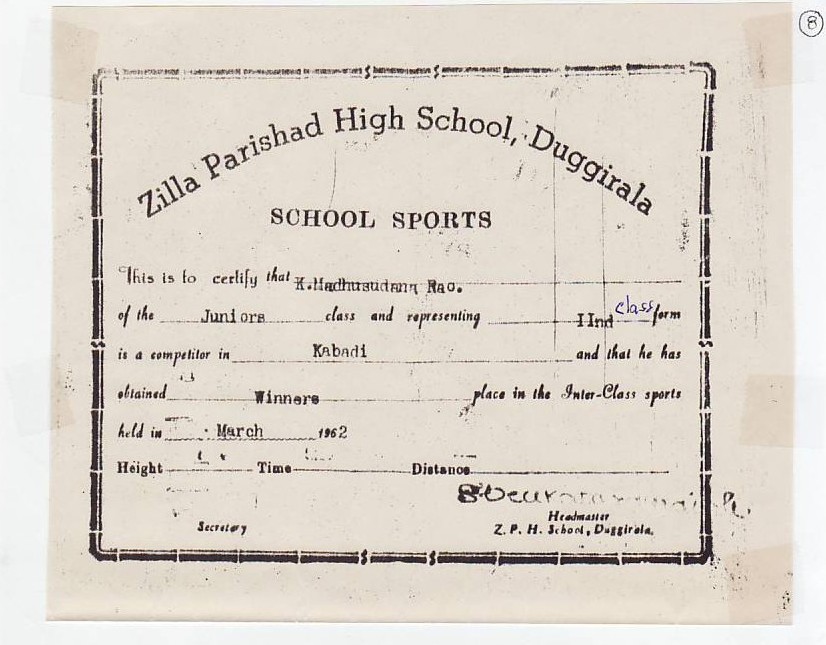 8
Zilla Parishad High School, Duggirala
SCHOOL SPORTS
This is to certify that K.Madhusudana Rao.
of the Juniors class and representing IInd class form
is a competitor in Kabadi and that he has
obtained Winners place in the Inter-Class sports
held in March 1962
Height Time Distance
Headmaster
Secretary Z. P. H. School, Duggirala.